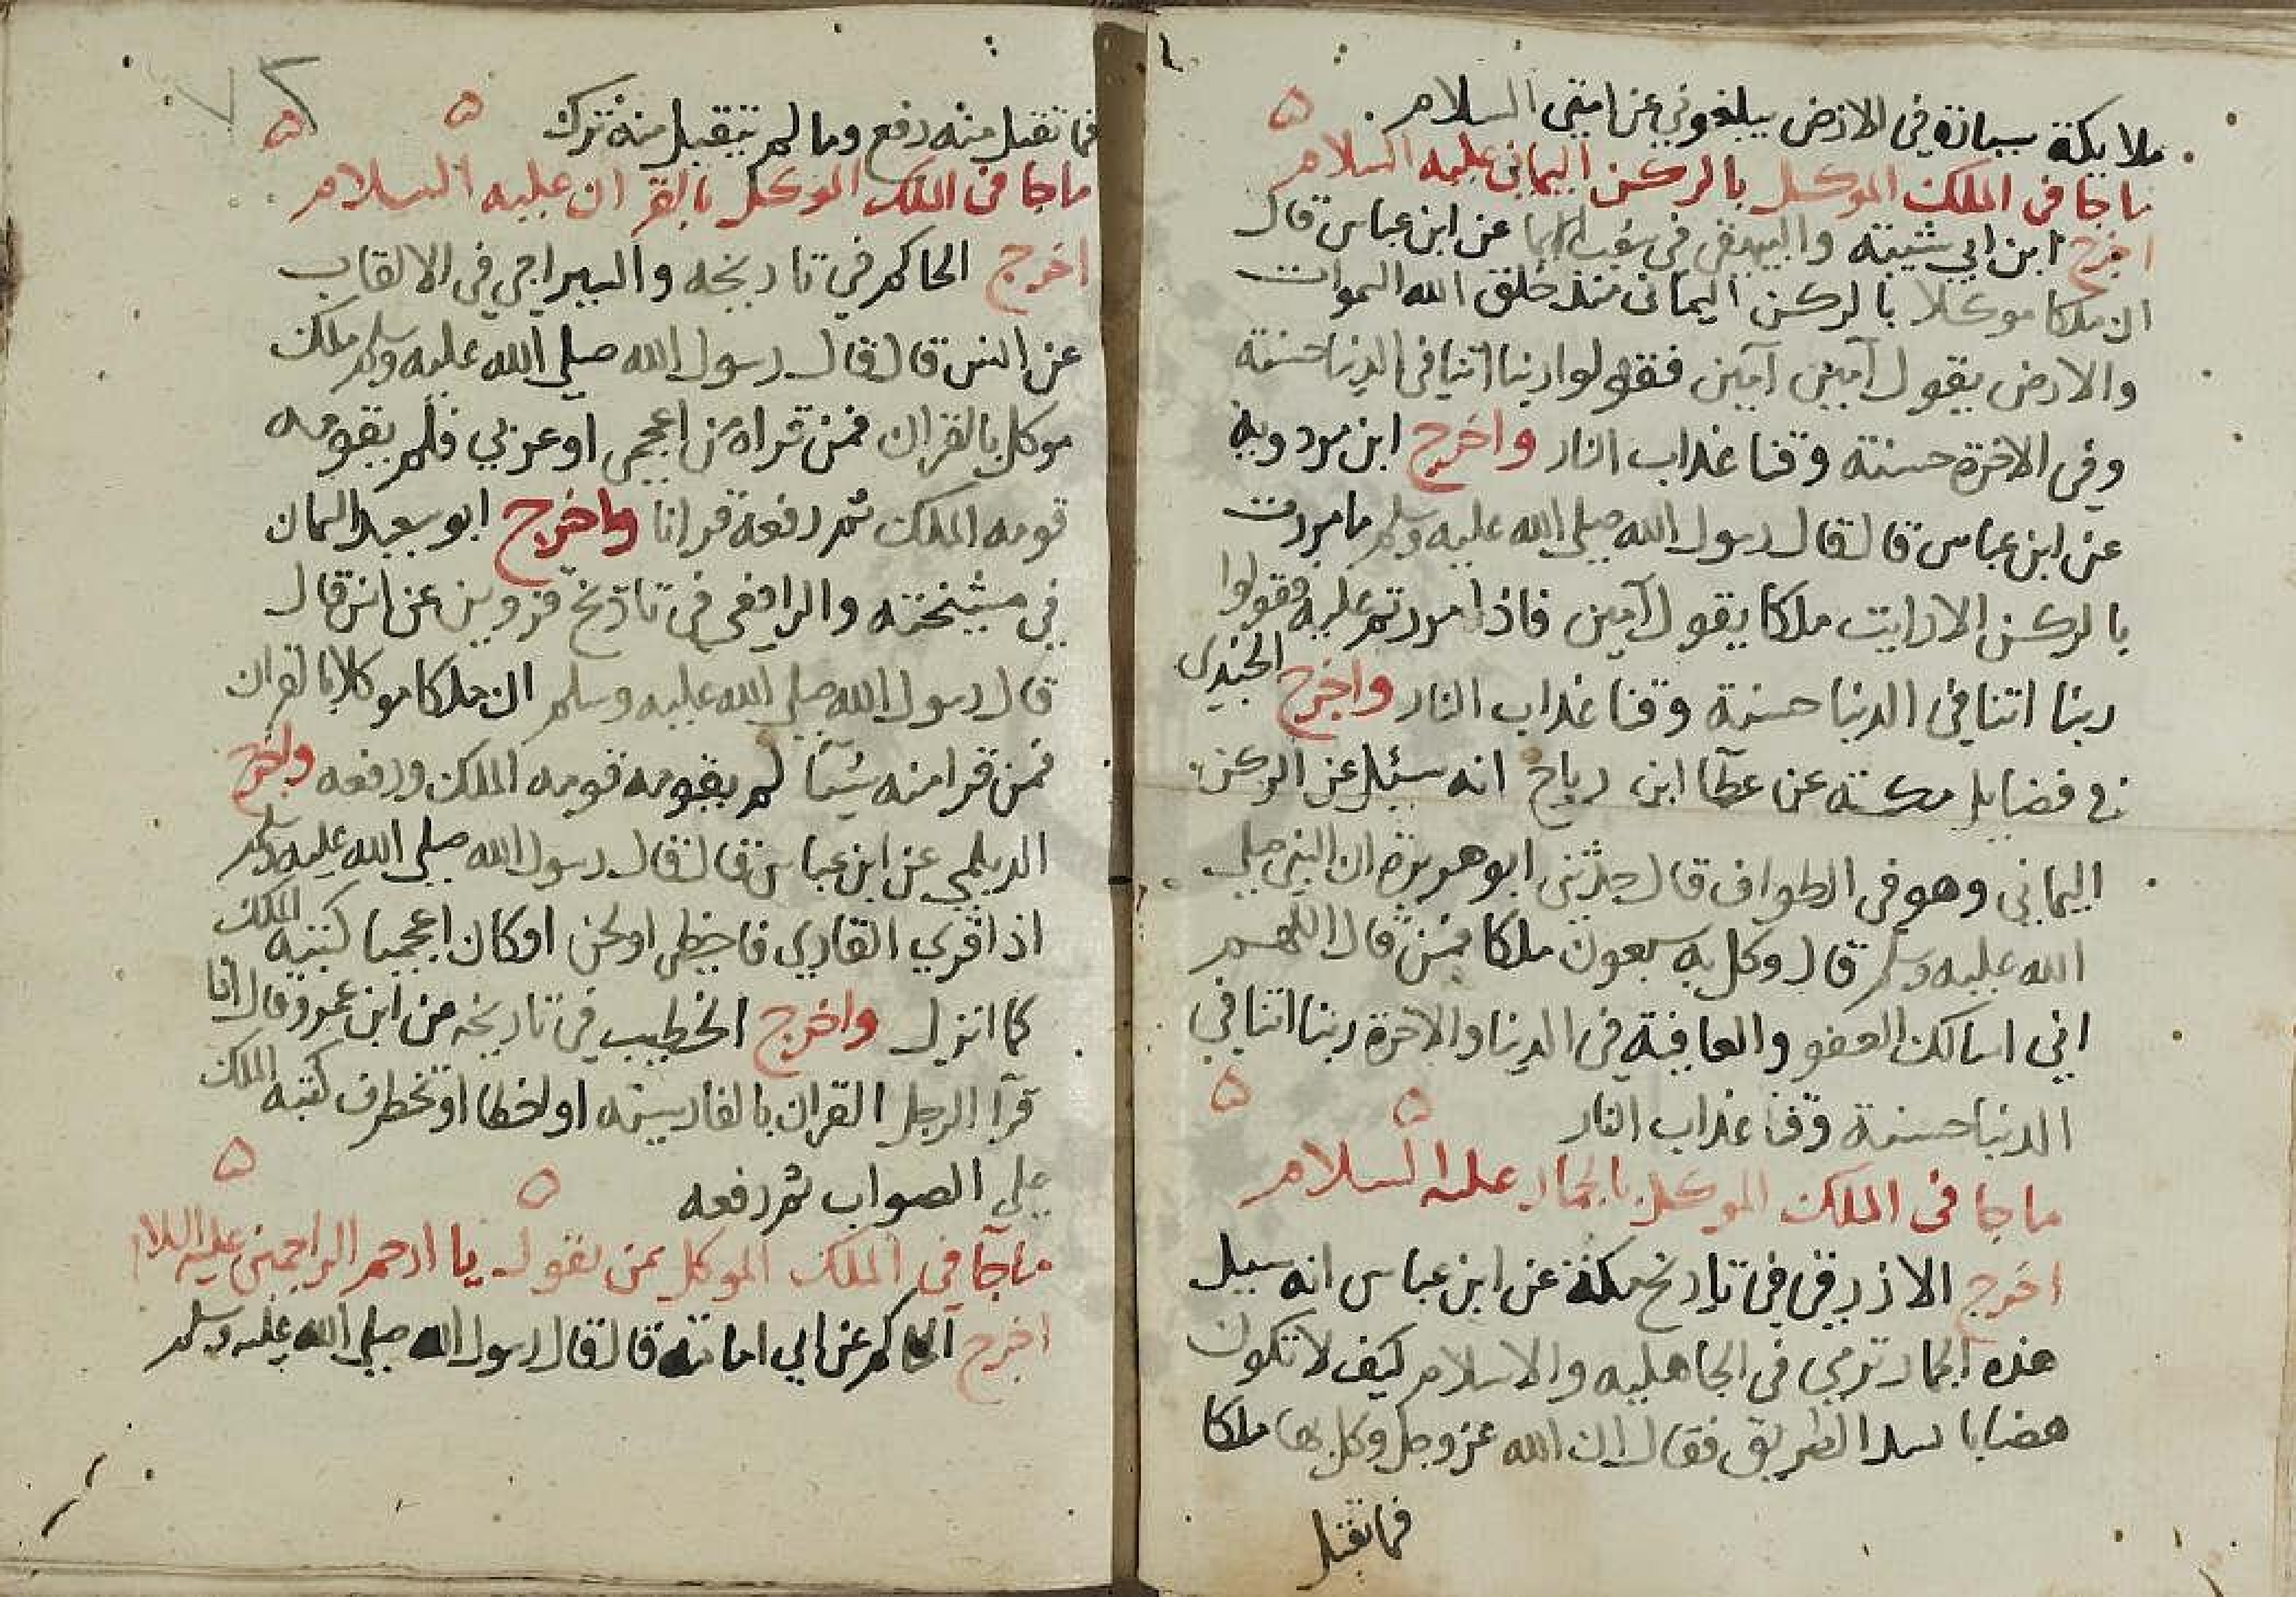 ملايكة سياة في الارض يبلغوني عن امتي السلام
ماجا في الملك الموكل بالركن اليماني عليه السلام
اخرج ابن ابي شيبة والبيهقي في شعب عن ابن عباس قال
ان ملكا موكلا بالركن اليماني منذ خلق الله السموات
والارض يقول آمين آمين فقولوا ربنا اتنا في الدنيا حسنة
وفي الاخرة حسنة وقنا عذاب النار واخرج ابن مردويه
عن ابن عباس قال قال رسول الله صلي الله عليه وسلم ما مررت
بالركن الا رايت ملكا يقول آمين فاذا مررتم عليه فقولوا
ربنا اتنا في الدنيا حسنة وقنا عذاب النار واخرج الجندي
في فضايل مكة عن عطآ ابن رباح انه سئيل عن الركن
اليماني وهو في الطواف قال حدثني ابو هريرة ان النبي صلي
الله عليه وسلم قال وكل به سبعون ملكا فمن قال اللهم
اني اسالك العفو والعافية في الدنيا والاخرة ربنا اتنا في
الدنيا حسنة وقنا عذاب النار
ماجا في الملك الموكل بالجمار عليه السلام
اخرج الازرقي في تاريخ مكة عن ابن عباس انه سيل
هذه الجمار ترمي في الجاهليه والاسلام كيف لا تكون
هضابا لسد الطريق فقال ان الله عز وجل وكل بها ملكا
فما تقبل
فما تقبل منه رفع وما لم يتقبل منه ترك
ماجا في الملك الموكل بالقران عليه السلام
اخرج الحاكم في تاريخه والسيراجي في الالقاب
عن انس قال قال رسول الله صلي الله عليه وسلم ملك
موكل بالقران فمن قراه من اعجمي او عربي فلم يقومه
قومه الملك ثم رفعه قرانا واخرج ابو سعيد السمان
في مشيخته والرافعي في تاريخ قزوين عن انس قال
قال رسول الله صلي الله عليه وسلم ان ملكا موكلا بالقران
فمن قرا منه شيئا لم يقومه قومه الملك ورفعه واخرج
الديلمي عن ابن عباس قال قال رسول الله صلي الله عليه وسلم
اذا قري القاري فاخطي او لحن او كان اعجميا كتبه الملك
كما انزل واخرج الخطيب في تاريخه من ابن عمرو قال اذا
قرآ الرجل القران بالفارسيه او اخطا او تخطرف كتبه الملك
علي الصواب ثم رفعه
ماجآ في الملك الموكل بمن يقول يا ارحم الراحمين عليه السلام
اخرج الحاكم عن ابي امامة قال قال رسول الله صلي الله عليه وسلم